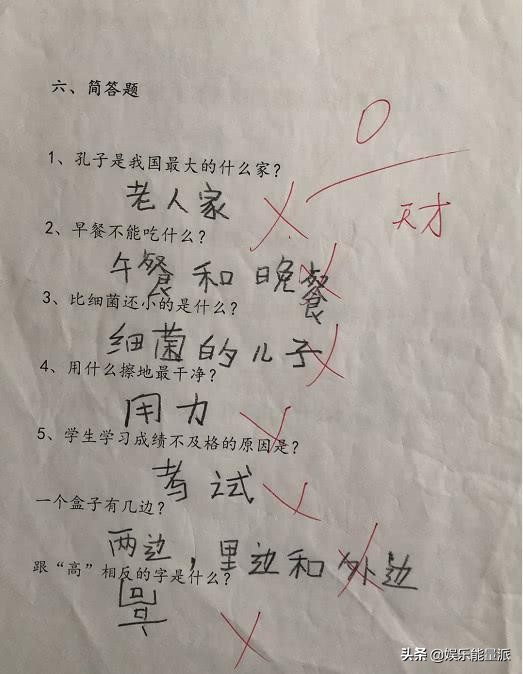 六、简答题
0
1、孔子是我国最大的什么家？
老人家
天才
2、早餐不能吃什么？
午餐和晚餐
3、比细菌还小的是什么？
细菌的儿子
4、用什么擦地最干净？
用力
5、学生学习成绩不及格的原因是？
考试
一个盒子有几边？
两边，里边和外边
跟“高”相反的字是什么？
头条 @娱乐能量派